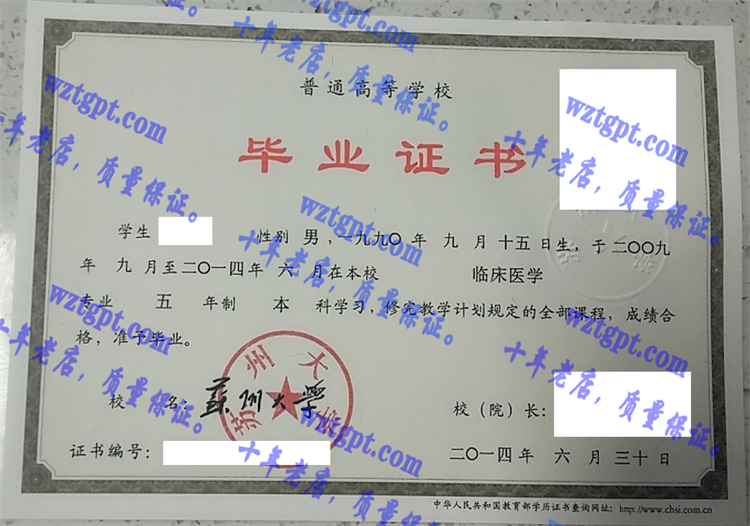 普通高等学校
毕业证书
学生 性别 男，一九九〇年 九 月十五日生，于二〇〇九
年 九 月至二〇一四年 六 月在本校 临床医学
专业 五 年制 本 科学习，修完教学计划规定的全部课程，成绩合
格，准予毕业。
校 名：蘇州大學
苏州大学
校（院）长：
证书编号：
二〇一四年 六 月 三十 日
中华人民共和国教育部学历证书查询网址：http://www.chsi.com.cn
wztgpt.com
十年老店，质量保证。
wztgpt.com
十年老店，质量保证。
wztgpt.com
十年老店，质量保证。
wztgpt.com
十年老店，质量保证。
wztgpt.com
十年老店，质量保证。
wztgpt.com
十年老店，质量保证。
wztgpt.com
十年老店，质量保证。